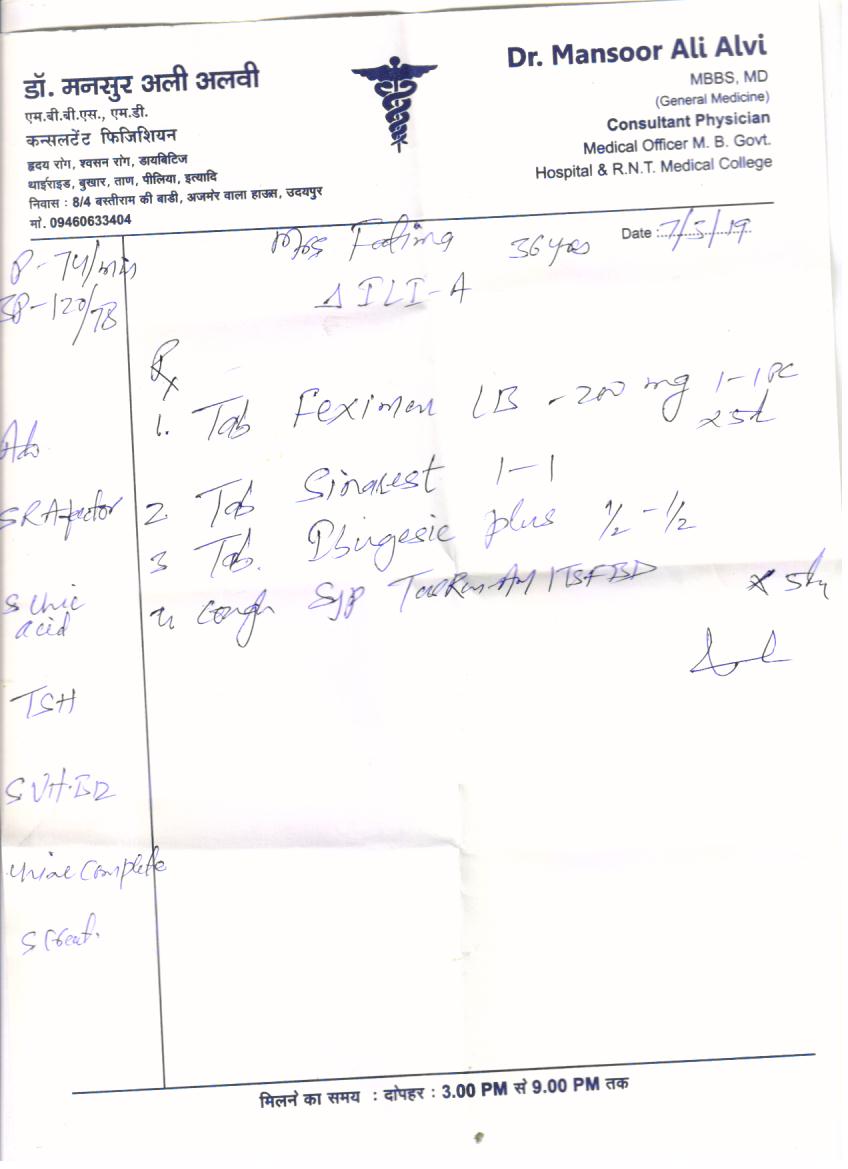 डॉ. मनसुर अली अलवी
एम.बी.बी.एस., एम.डी.
कन्सलटेंट फिजिशियन
हृदय रोग, श्वसन रोग, डायबिटिज
थाईराइड, बुखार, ताण, पीलिया, इत्यादि
निवास : 8/4 बस्तीराम की बाडी, अजमेर वाला हाउस, उदयपुर
मो. 09460633404
Dr. Mansoor Ali Alvi
MBBS, MD
(General Medicine)
Consultant Physician
Medical Officer M. B. Govt.
Hospital & R.N.T. Medical College
Fatima 36 yrs Date : 7/5/19
P - 74/min
BP - 120/78
Δ ILI-A
Rx
1. Tab LB - 200 mg 1-1 PC
Adv
S RA factor
2 Tab Sinarest 1-1
3 Tab. Ibugesic plus 1/2 - 1/2
S Uric
acid
4 Cough Syp
TSH
Urine Complete
S Creat.
मिलने का समय : दोपहर : 3.00 PM से 9.00 PM तक